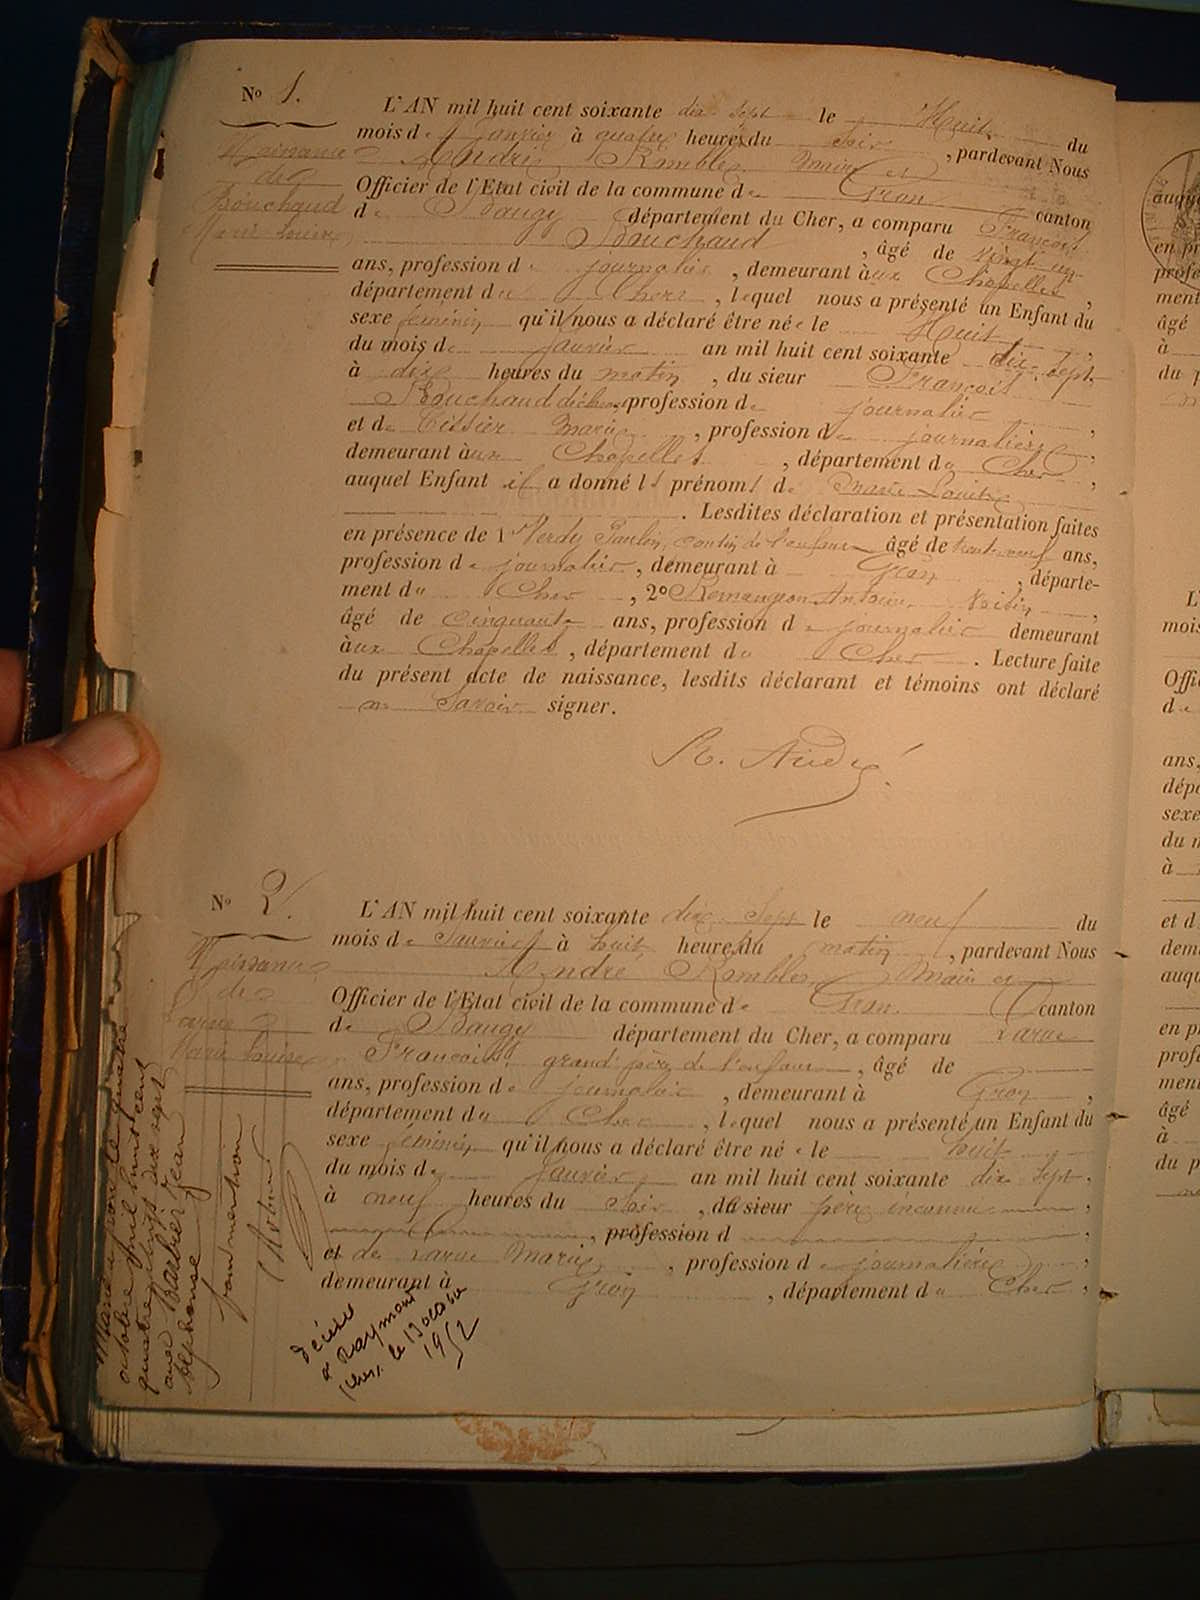 N° 1.
Naissance
de
Bouchaud
Marie Louise
L'AN mil huit cent soixante dix sept le Huit du
mois de Janvier à quatre heures du soir, pardevant Nous
André Rambler Maire et
Officier de l'Etat civil de la commune de Gron canton
de Baugy département du Cher, a comparu François
Bouchaud, âgé de vingt un
ans, profession de journalier, demeurant aux Chapelles,
département du Cher, lequel nous a présenté un Enfant du
sexe féminin qu'il nous a déclaré être née le Huit
du mois de janvier an mil huit cent soixante dix-sept
à dix heures du matin, du sieur François
Bouchaud profession de journalier,
et de Tissier Marie, profession de journalière,
demeurant aux Chapelles, département du Cher,
auquel Enfant il a donné les prénoms de Marie Louise
. Lesdites déclaration et présentation faites
en présence de 1° Verdy Paulin, cousin de l'enfant âgé de trente neuf ans,
profession de journalier, demeurant à Gron, départe-
ment du Cher, 2° Remangeon Antoine Voisin,
âgé de cinquante ans, profession de journalier demeurant
aux Chapelles, département du Cher. Lecture faite
du présent acte de naissance, lesdits déclarant et témoins ont déclaré
ne savoir signer.
R. André
N° 2.
Naissance
de
Larue
Marie Louise
L'AN mil huit cent soixante dix Sept le neuf du
mois de Janvier à huit heures du matin, pardevant Nous
André Rambler Maire et
Officier de l'Etat civil de la commune de Gron canton
de Baugy département du Cher, a comparu Larue
François grand père de l'enfant, âgé de
ans, profession de journalier, demeurant à Gron,
département du Cher, lequel nous a présenté un Enfant du
sexe féminin qu'il nous a déclaré être née le huit
du mois de janvier an mil huit cent soixante dix sept,
à neuf heures du soir, du sieur père inconnu,
, profession d
et de Larue Marie, profession de journalière
demeurant à Gron, département du Cher,
octobre mil huit cent
quatre vingt dix sept
avec Barbier Jean
Alphonse
pour mention
décédée
à Raymond
Cher. le 13 octobre
1952